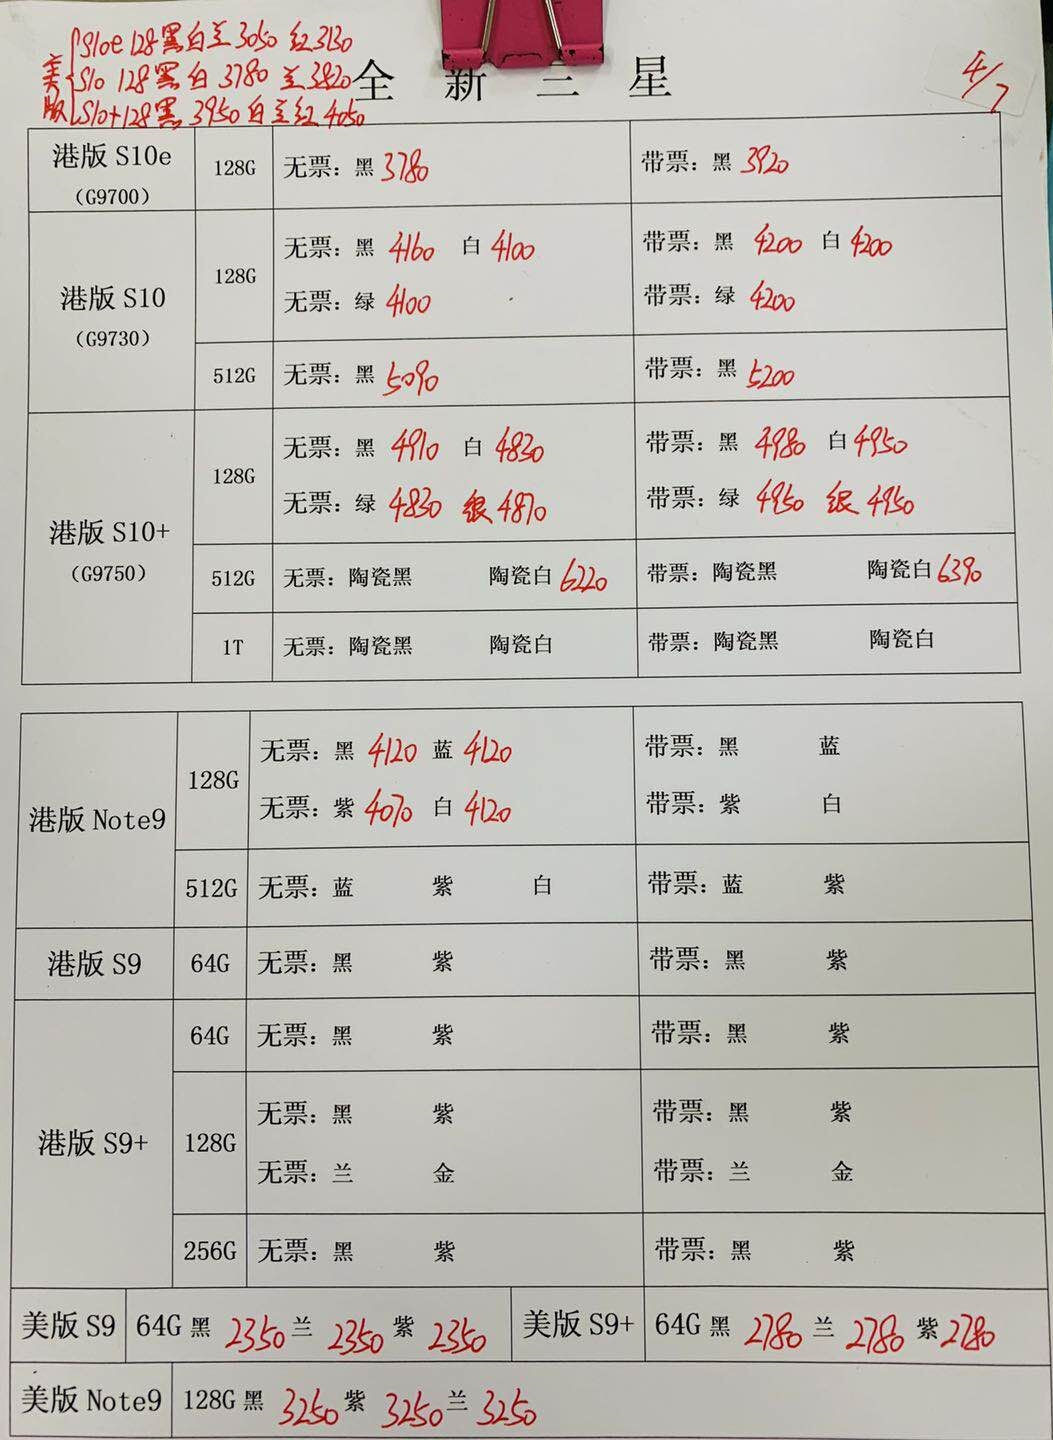 美版 S10e 128 黑白兰 3050 红 3130
S10 128 黑白 3780 兰 3820
S10+ 128 黑 3950 白兰红 4050
全新三星
4/7
港版 S10e
（G9700）
128G
无票：黑 3780
带票：黑 3920
港版 S10
（G9730）
128G
无票：黑 4160 白 4100
带票：黑 4200 白 4200
无票：绿 4100
带票：绿 4200
512G
无票：黑 5090
带票：黑 5200
港版 S10+
（G9750）
128G
无票：黑 4910 白 4830
带票：黑 4980 白 4950
无票：绿 4830 银 4870
带票：绿 4950 银 4950
512G
无票：陶瓷黑 陶瓷白 6220
带票：陶瓷黑 陶瓷白 6390
1T
无票：陶瓷黑 陶瓷白
带票：陶瓷黑 陶瓷白
港版 Note9
128G
无票：黑 4120 蓝 4120
带票：黑 蓝
无票：紫 4070 白 4120
带票：紫 白
512G
无票：蓝 紫 白
带票：蓝 紫
港版 S9
64G
无票：黑 紫
带票：黑 紫
港版 S9+
64G
无票：黑 紫
带票：黑 紫
128G
无票：黑 紫
带票：黑 紫
无票：兰 金
带票：兰 金
256G
无票：黑 紫
带票：黑 紫
美版 S9
64G 黑 2350 兰 2350 紫 2350
美版 S9+
64G 黑 2780 兰 2780 紫 2780
美版 Note9
128G 黑 3250 紫 3250 兰 3250